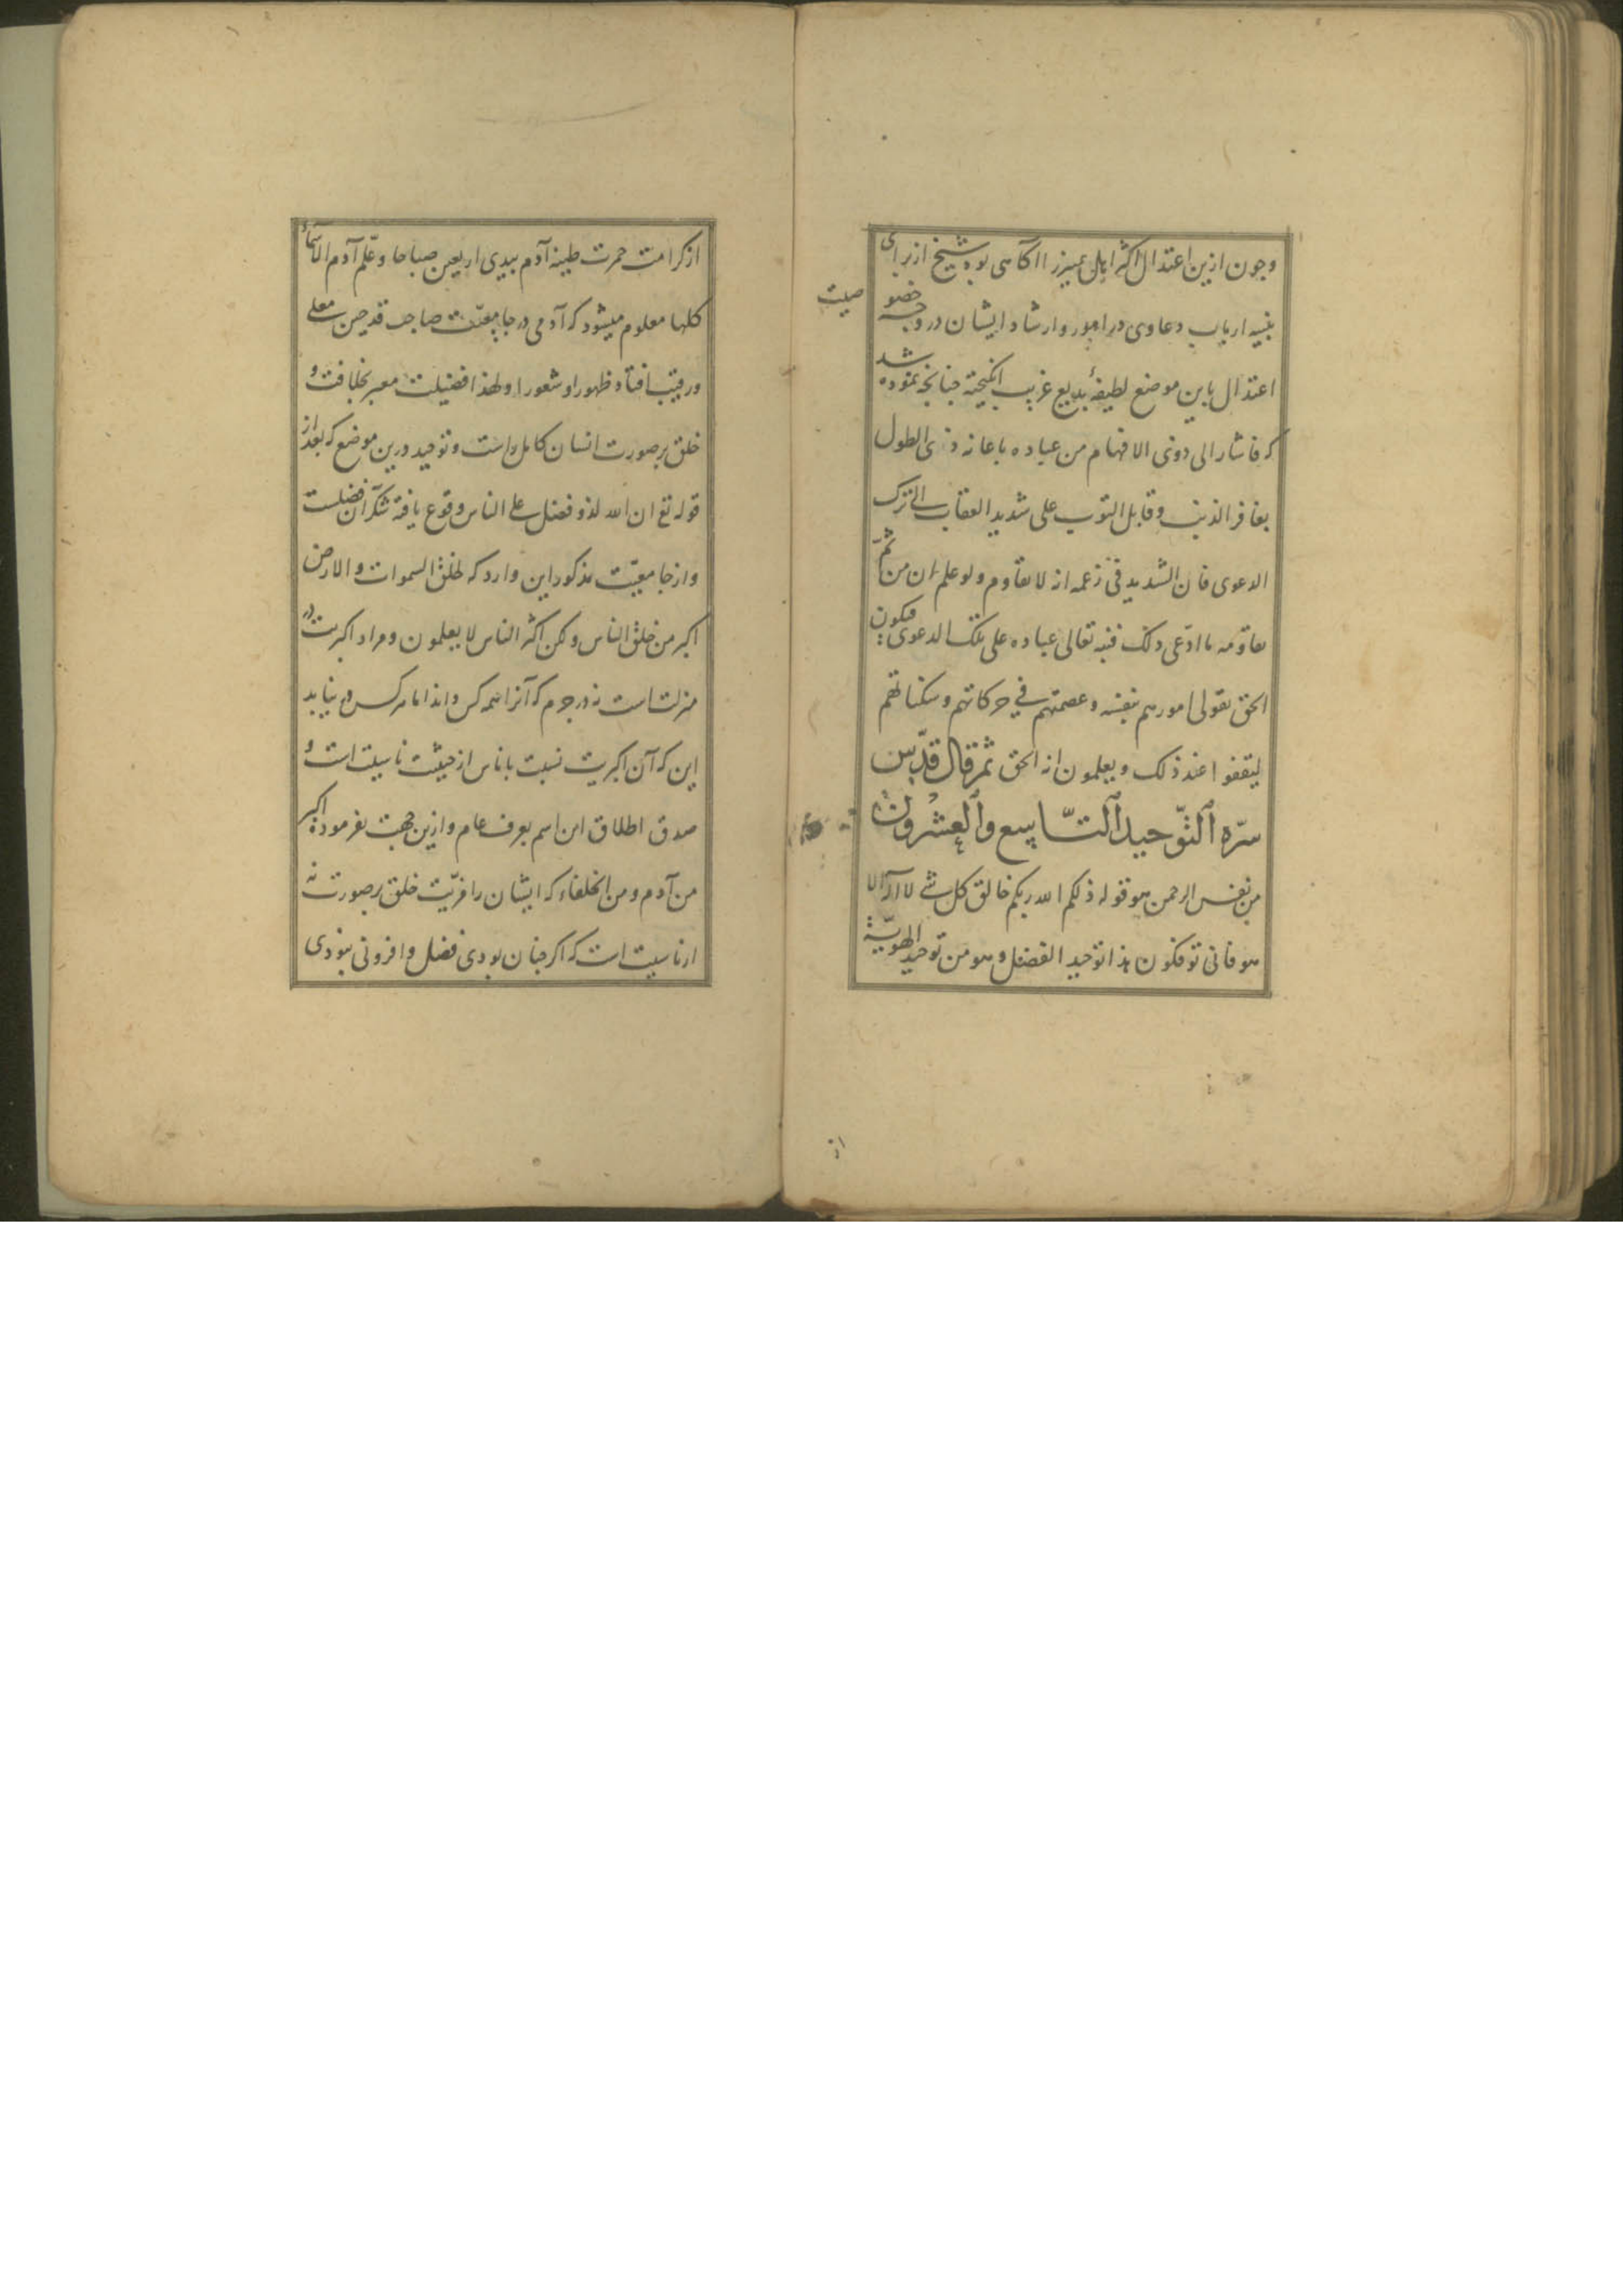 وچون ازین اعتدال اکثر اهل تمییز را آکاهی بود شیخ از برای
تنبیه ارباب دعاوی در امور وارشاد ایشان در وجه خصو
صیت
اعتدال باین موضع لطیفهٔ بدیع غریب انکیخته چنانچه نموده شد
که فاشار الی ذوی الافهام من عباده باعانه ذی الطول
بغافر الذنب وقابل التوب علی شدید العقاب الی ترک
الدعوی فان الشدید فی زعمه انه لا یقاوم ولو علم ان من ثمّ
یقاومه ما ادّعی ذلک فنبه تعالی عباده علی تلک الدعوی فیکون
الحق یتولی امورهم بنفسه وعصمتهم فی حرکاتهم وسکناتهم
لیقفوا عند ذلک ویعلمون انه الحق ثم قال قدّس
سرّه التّوحید التّاسع والعشرون
من نفس الرحمن هو قوله ذلکم الله ربکم خالق کل شی لا اله الا
هو فانی توفکون هذا توحید الفضل وهو من توحید الهویّة
از
از کرامت خمرت طینة آدم بیدی اربعین صباحا وعلّم آدم الاسماء
کلها معلوم میشود که آدمی در جامعیّت صاحب قدحین معلی
ورقیب افتاد ظهور او شعورا ولهذا افضیلت معبر بخلافت و
خلق بر صورت انسان کامل راست وتوحید درین موضع که بعد از
قوله تع ان الله لذو فضل علی الناس وقوع یافته شکر آن فضلست
واز جامعیّت مذکور این وارد که لخلق السموات والارض
اکبر من خلق الناس ولکن اکثر الناس لا یعلمون ومراد اکبریت در
منزلت است نه در جرم که آنرا همه کس داند اما هر کس در نیابد
این که آن اکبریت نسبت با ناس از حیثیت ناسیت است و
صدق اطلاق این اسم بعرف عام وازین جهت نفرموده اکبر
من آدم ومن الخلفاء که ایشان را مزیّت خلق بر صورت نه
از ناسیت است که اکر چنان بودی فضل وافزونی نبودی